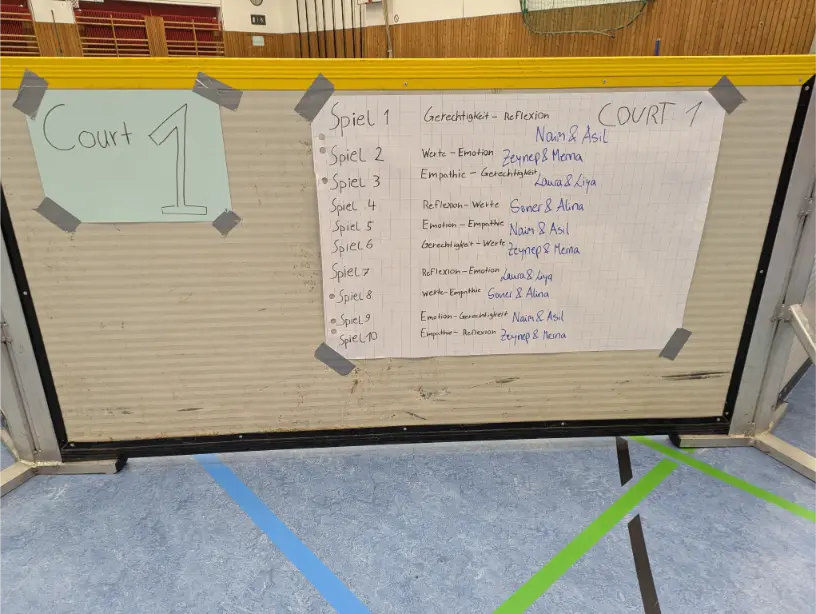 Court 1
COURT 1
Spiel 1 Gerechtigkeit - Reflexion Naim & Asil
Spiel 2 Werte - Emotion Zeynep & Merna
Spiel 3 Empathie - Gerechtigkeit Laura & Liya
Spiel 4 Reflexion - Werte Soner & Alina
Spiel 5 Emotion - Empathie Naim & Asil
Spiel 6 Gerechtigkeit - Werte Zeynep & Merna
Spiel 7 Reflexion - Emotion Laura & Liya
Spiel 8 Werte - Empathie Soner & Alina
Spiel 9 Emotion - Gerechtigkeit Naim & Asil
Spiel 10 Empathie - Reflexion Zeynep & Merna